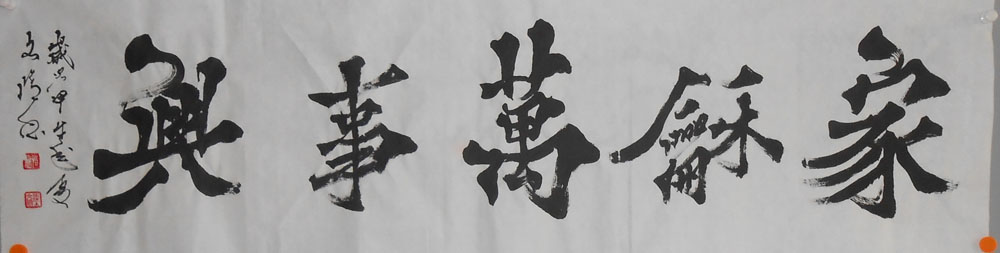 家龢萬事興
歲次甲午之夏